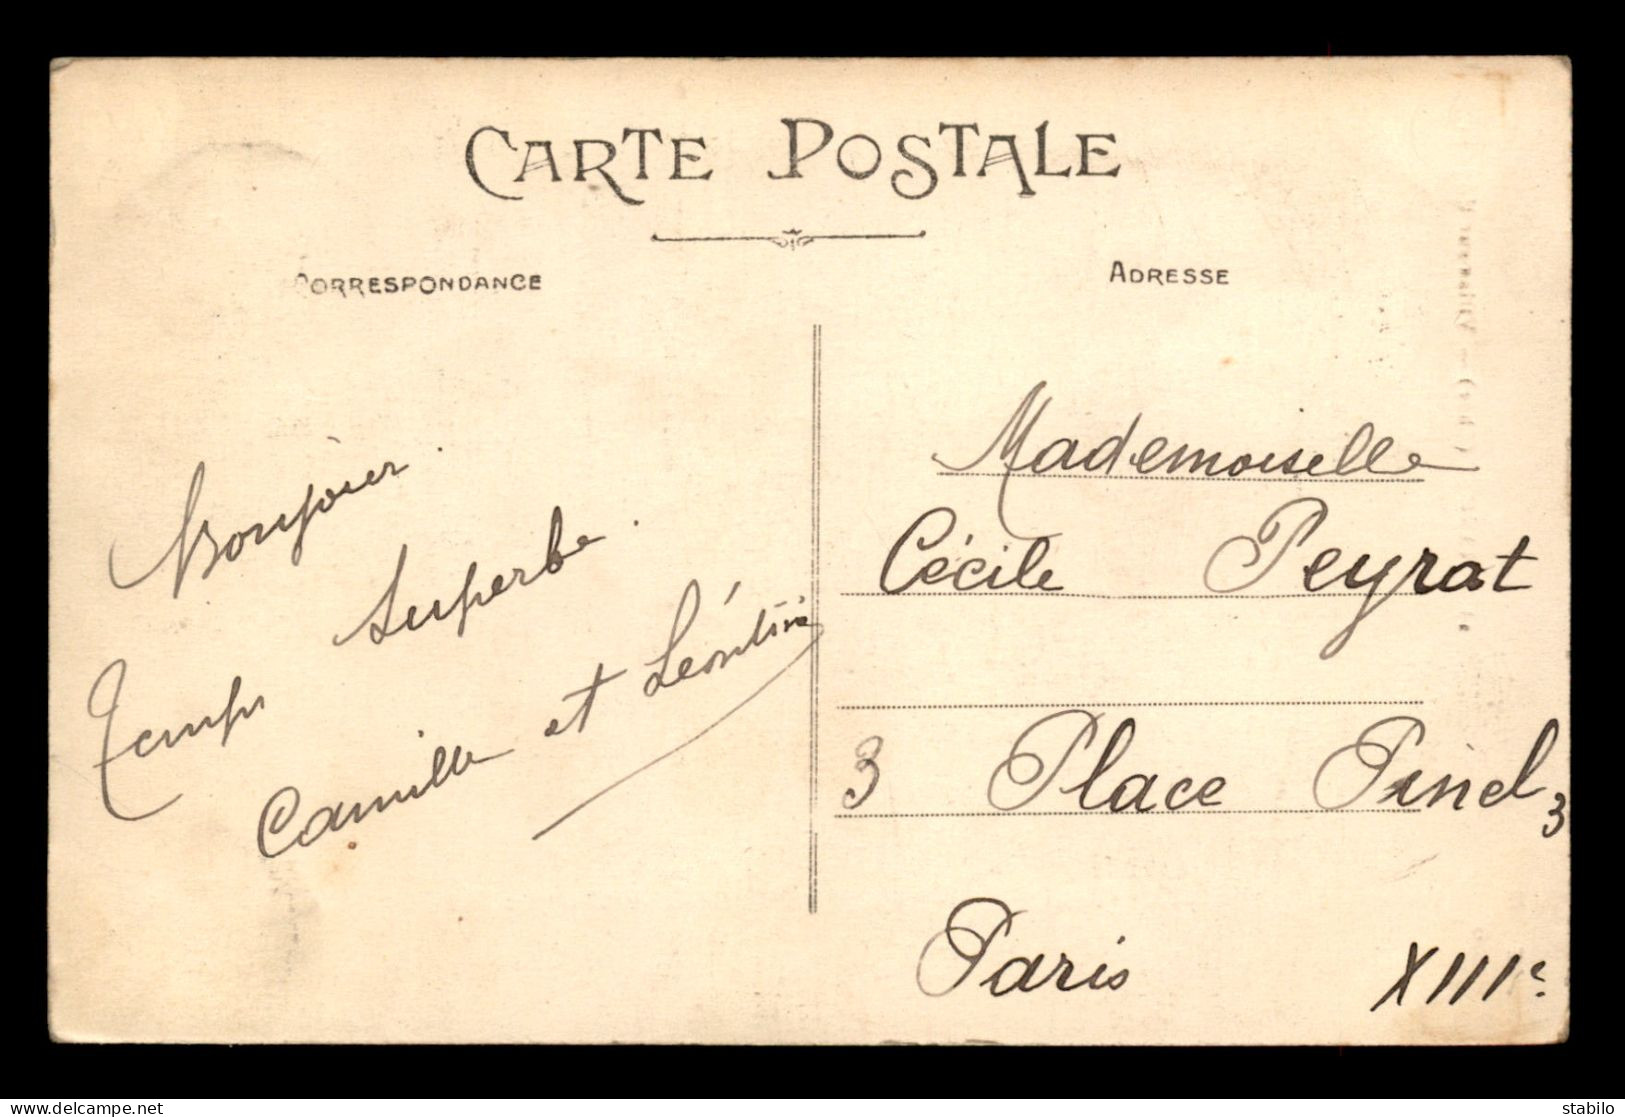 CARTE POSTALE
CORRESPONDANCE
ADRESSE
Bonjour.
Temps superbe.
Camille et Léontine
Mademoiselle
Cécile Peyrat
3 Place Pinel 3
Paris XIIIe
stabilo